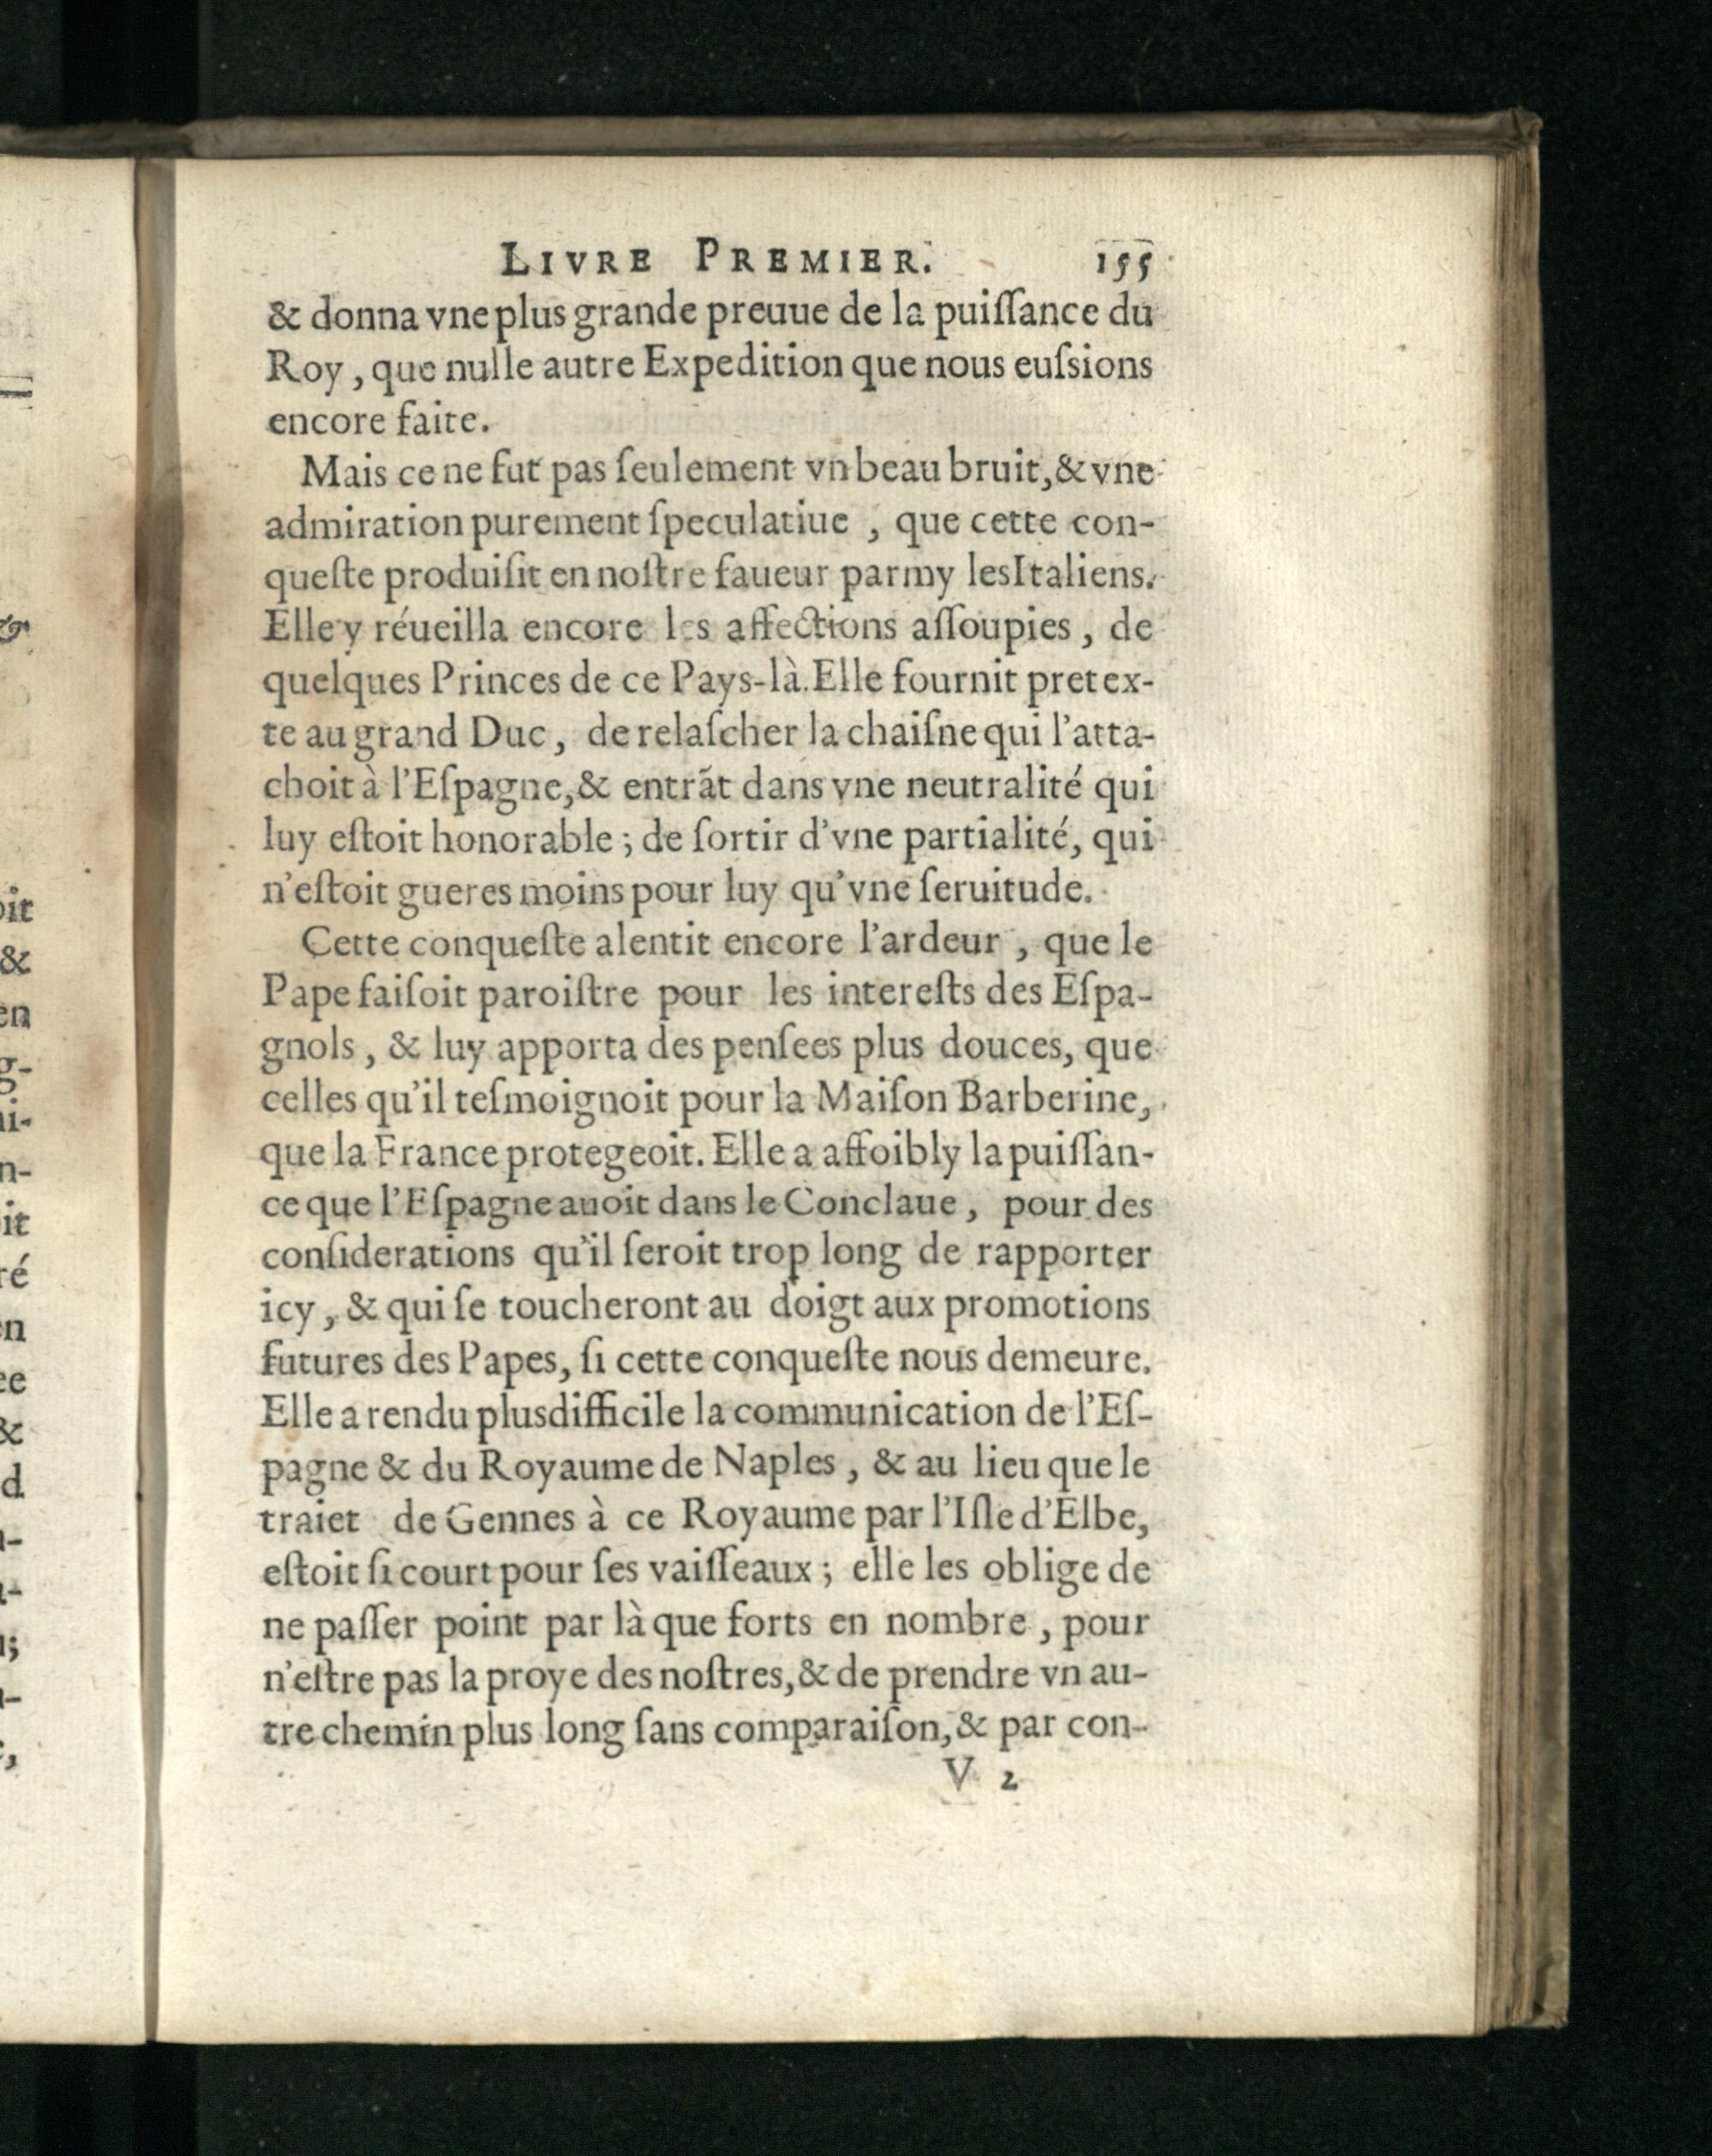 LIVRE PREMIER. 155
& donna vne plus grande preuue de la puiſſance du
Roy, que nulle autre Expedition que nous euſsions
encore faite.
Mais ce ne fut pas ſeulement vn beau bruit, & vne
admiration purement ſpeculatiue , que cette con-
queſte produiſit en noſtre faueur parmy les Italiens.
Elle y réueilla encore les affections aſſoupies, de
quelques Princes de ce Pays-là. Elle fournit pretex-
te au grand Duc, de relaſcher la chaiſne qui l'atta-
choit à l'Eſpagne, & entrãt dans vne neutralité qui
luy eſtoit honorable ; de ſortir d'vne partialité, qui
n'eſtoit gueres moins pour luy qu'vne ſeruitude.
Cette conqueſte alentit encore l'ardeur , que le
Pape faiſoit paroiſtre pour les intereſts des Eſpa-
gnols , & luy apporta des penſees plus douces, que
celles qu'il teſmoignoit pour la Maiſon Barberine,
que la France protegeoit. Elle a affoibly la puiſſan-
ce que l'Eſpagne auoit dans le Conclaue, pour des
conſiderations qu'il ſeroit trop long de rapporter
icy , & qui ſe toucheront au doigt aux promotions
futures des Papes, ſi cette conqueſte nous demeure.
Elle a rendu plus difficile la communication de l'Eſ-
pagne & du Royaume de Naples , & au lieu que le
traiet de Gennes à ce Royaume par l'Iſle d'Elbe,
eſtoit ſi court pour ſes vaiſſeaux ; elle les oblige de
ne paſſer point par là que forts en nombre , pour
n'eſtre pas la proye des noſtres, & de prendre vn au-
tre chemin plus long ſans comparaiſon, & par con-
V 2